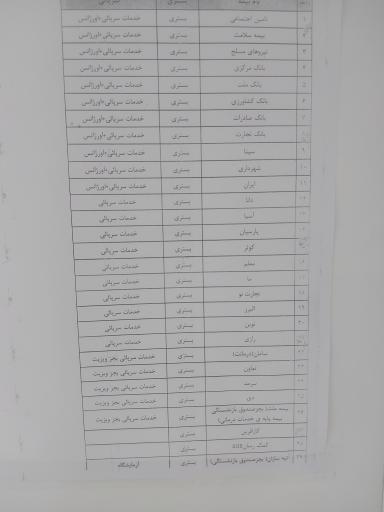 نام بیمه بستری سرپائی
۱ تامین اجتماعی بستری خدمات سرپائی+اورژانس
۲ بیمه سلامت بستری خدمات سرپائی+اورژانس
۳ نیروهای مسلح بستری خدمات سرپائی+اورژانس
۴ بانک مرکزی بستری خدمات سرپائی+اورژانس
۵ بانک ملت بستری خدمات سرپائی+اورژانس
۶ بانک کشاورزی بستری خدمات سرپائی+اورژانس
۷ بانک صادرات بستری خدمات سرپائی+اورژانس
۸ بانک تجارت بستری خدمات سرپائی+اورژانس
۹ سینا بستری خدمات سرپائی+اورژانس
۱۰ شهرداری بستری خدمات سرپائی+اورژانس
۱۱ ایران بستری خدمات سرپائی+اورژانس
۱۲ دانا بستری خدمات سرپائی
۱۳ آسیا بستری خدمات سرپائی
۱۴ پارسیان بستری خدمات سرپائی
۱۵ کوثر بستری خدمات سرپائی
۱۶ معلم بستری خدمات سرپائی
۱۷ ما بستری خدمات سرپائی
۱۸ تجارت نو بستری خدمات سرپائی
۱۹ البرز بستری خدمات سرپائی
۲۰ نوین بستری خدمات سرپائی
رازی بستری خدمات سرپائی
سامان(درمانت) بستری خدمات سرپائی بجز ویزیت
تعاون بستری خدمات سرپائی بجز ویزیت
سرمد بستری خدمات سرپائی بجز ویزیت
۲۵ دی بستری خدمات سرپائی بجز ویزیت
بیمه ملت( بجزصندوق بازنشستگی
بیمه پایه ی خدمات درمانی) بستری خدمات سرپائی بجز ویزیت
کارآفرین بستری
کمک رسان SOS بستری
آتیه سازان( بجزصندوق بازنشستگی) بستری آزمایشگاه